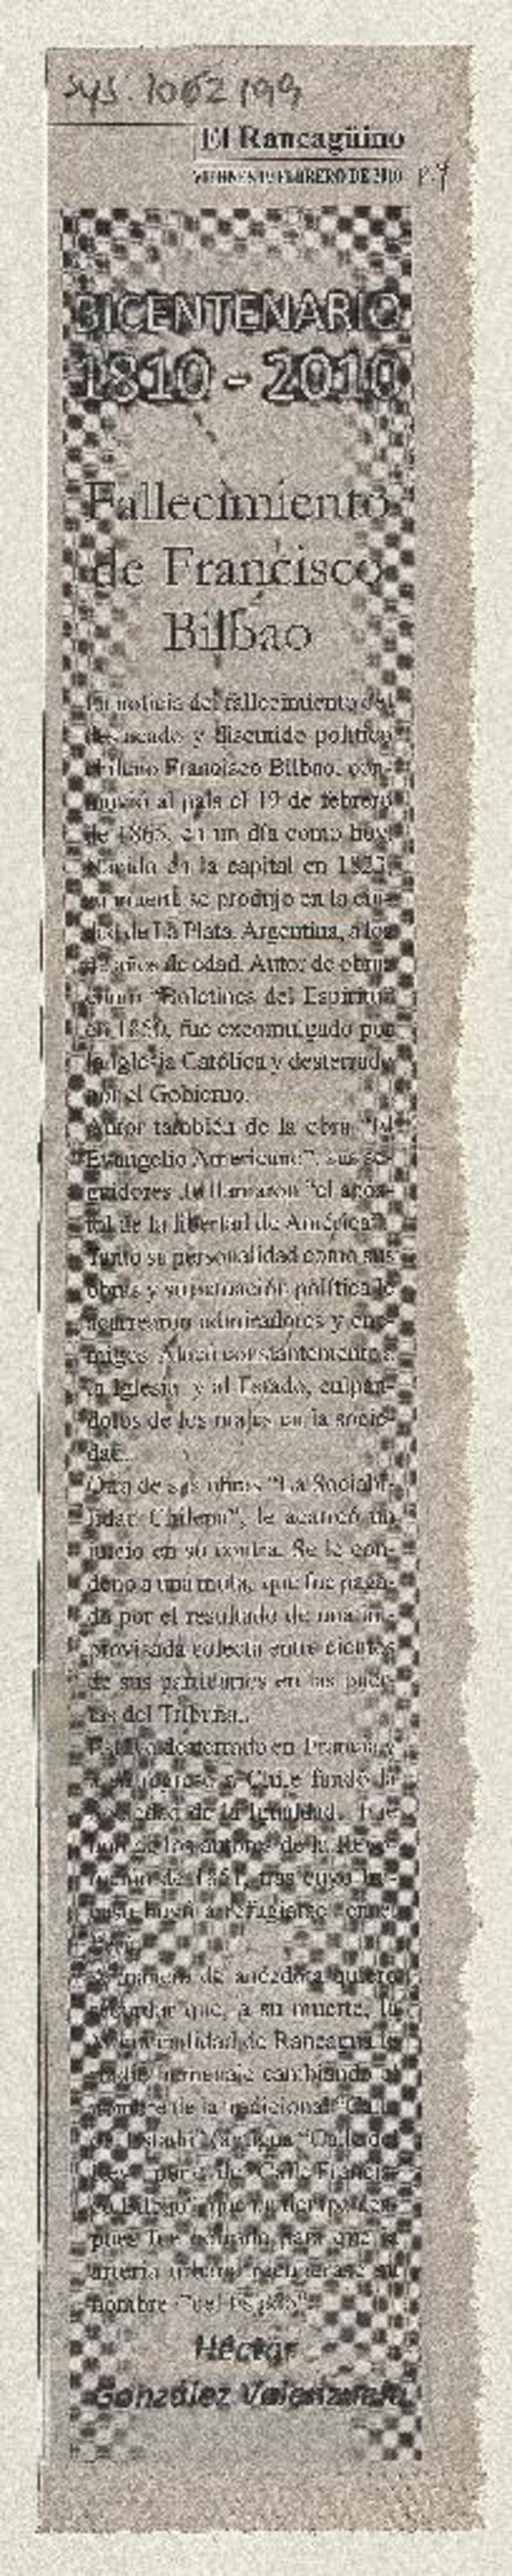 sys. 1002199
El Rancagüino
VIERNES 19 FEBRERO DE 2010
p. 4
BICENTENARIO
1810 - 2010
Fallecimiento
de Francisco
Bilbao
La noticia del fallecimiento del
destacado y discutido político
chileno Francisco Bilbao, con-
movió al país el 19 de febrero
de 1865, en un día como hoy.
Nacido en la capital en 1823,
su muerte se produjo en la ciu-
dad de La Plata, Argentina, a los
años de edad. Autor de obras
como "Boletines del Espíritu"
en 1850, fue excomulgado por
la Iglesia Católica y desterrado
por el Gobierno.
Autor también de la obra "El
Evangelio Americano", sus se-
guidores lo llamaron "el após-
tol de la libertad de América".
Tanto su personalidad como sus
obras y su actuación política le
acarrearon admiradores y ene-
migos. Atacó constantemente a
la Iglesia y al Estado, culpán-
dolos de los males en la socie-
dad.
Otra de sus obras "La Sociabi-
lidad Chilena", le acarreó un
juicio en su contra. Se le con-
denó a una multa, que fue paga-
da por el resultado de una im-
provisada colecta entre cientos
de sus partidarios en las puer-
tas del Tribunal.
Estuvo desterrado en Francia y
a su regreso a Chile fundó la
Sociedad de la Igualdad. Fue
uno de los autores de la Revo-
lución de 1851, tras cuyo fra-
caso huyó a refugiarse en el
Perú.
A manera de anécdota quiero
recordar que, a su muerte, la
Municipalidad de Rancagua le
rindió homenaje cambiando el
nombre de la tradicional "Calle
del Estado" (antigua "Calle del
Rey") por el de "Calle Francis-
co Bilbao", que un tiempo des-
pués fue retirado para que la
arteria urbana recuperase su
nombre
Héctor
González Valenzuela